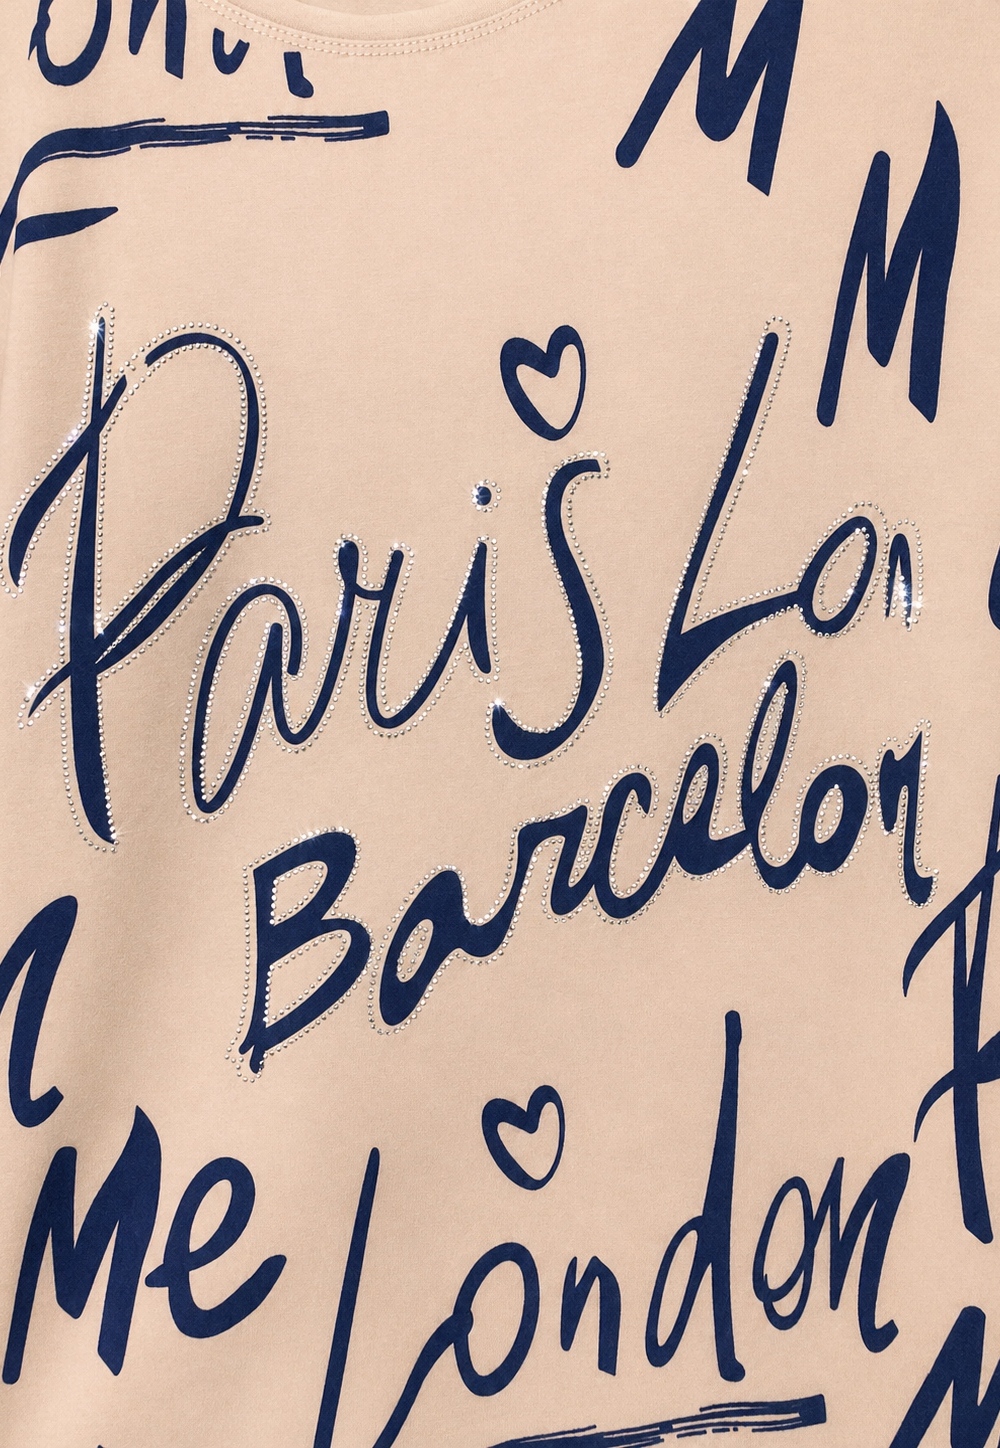 M
M
Paris Lon
Barcelon
Me London
M